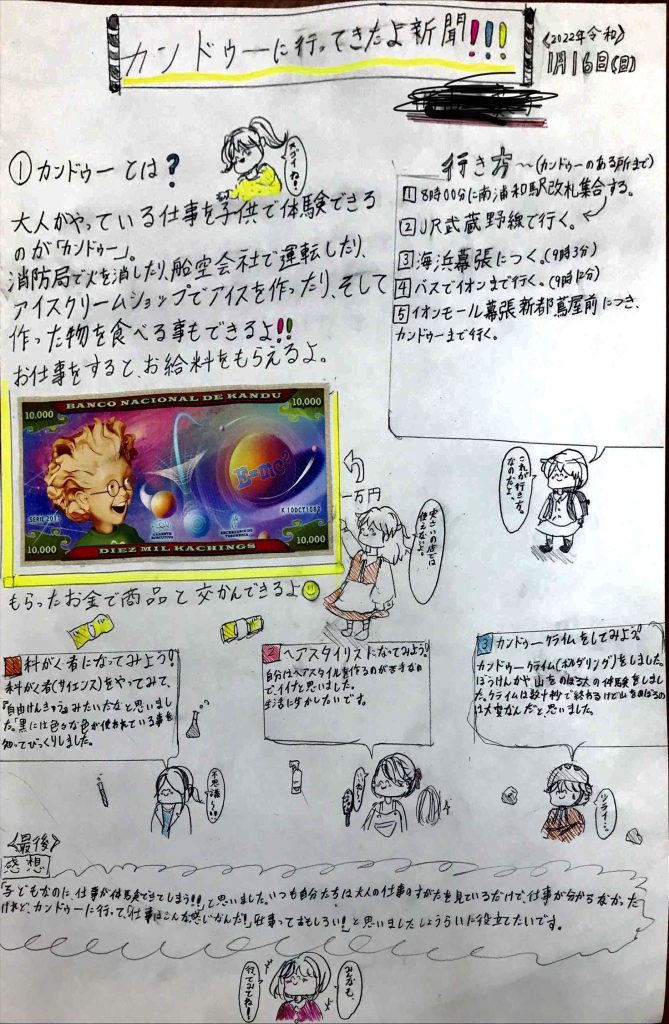 カンドゥーに行ってきたよ新聞!!!
《2022年令和》
1月16日(日)
①カンドゥーとは?
スゴイね!
大人がやっている仕事を子供で体験できる
のが「カンドゥー」。
消防局で火を消したり、船空会社で運転したり、
アイスクリームショップでアイスを作ったり、そして
作った物を食べる事もできるよ!!
お仕事をすると、お給料をもらえるよ。
行き方〜(カンドゥーのある所まで)
1 8時00分に南浦和駅改札集合する。
2 JR武蔵野線で行く。
3 海浜幕張につく。(9時3分)
4 バスでイオンまで行く。(9時12分)
5 イオンモール幕張新都蔦屋前につき、
カンドゥーまで行く。
これが行き方。
なのだよ、
10,000
BANCO NACIONAL DE KANDU
10,000
E=mc²
SERIE 2011
K10OCT1082
10,000
DIEZ MIL KACHINGS
10,000
一万円
実さいの店では
使えないよ。
もらったお金で商品と交かんできるよ
1 科がく者になってみよう!
科がく者(サイエンス)をやってみて、
「自由けんきゅう」みたいだなと思いま
した。「黒には色々な色が使われている事を
知ってびっくりしました。
不思議〜
2 ヘアスタイリストになってみよう!
自分はヘアスタイルを作るのが苦手なの
で、イイナと思いました。
生活に生かしたいです。
3 カンドゥークライムをしてみよう!
カンドゥークライム(ボルダリング)をしました。
ぼうけんかや山をのぼる人の体験をしまし
た。クライムは数十秒で終わるけど山をのぼるの
は大変なんだと思いました。
ツライ…
《最後》
感想
「子どもなのに、仕事が体験できてしまう!!」と思いました。いつも自分たちは大人の仕事のすがたを見ているだけで、仕事が分からなかった
けれど、カンドゥーに行って、「仕事はこんな感じなんだ!」「仕事っておもしろい!」と思いましたしょうらいに役立てたいです。
みんなも、
行ってみてね!